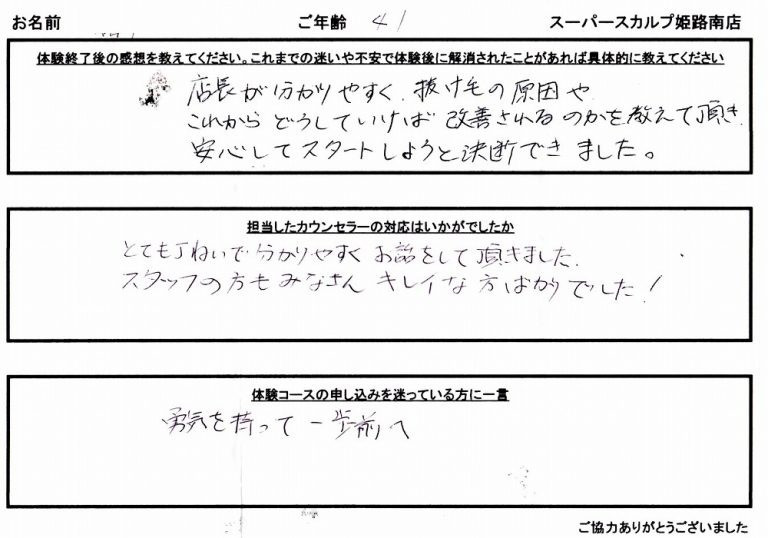 お名前 ご年齢 41 スーパースカルプ姫路南店
体験終了後の感想を教えてください。これまでの迷いや不安で体験後に解消されたことがあれば具体的に教えてください
店長が分かりやすく、抜け毛の原因や
これから どうしていけば 改善されるのかを教えて頂き、
安心してスタートしようと決断できました。
担当したカウンセラーの対応はいかがでしたか
とても丁ねいで分かりやすく お話をして頂きました。
スタッフの方もみなさん キレイな方ばかりでした!
体験コースの申し込みを迷っている方に一言
勇気を持って一歩前へ
ご協力ありがとうございました